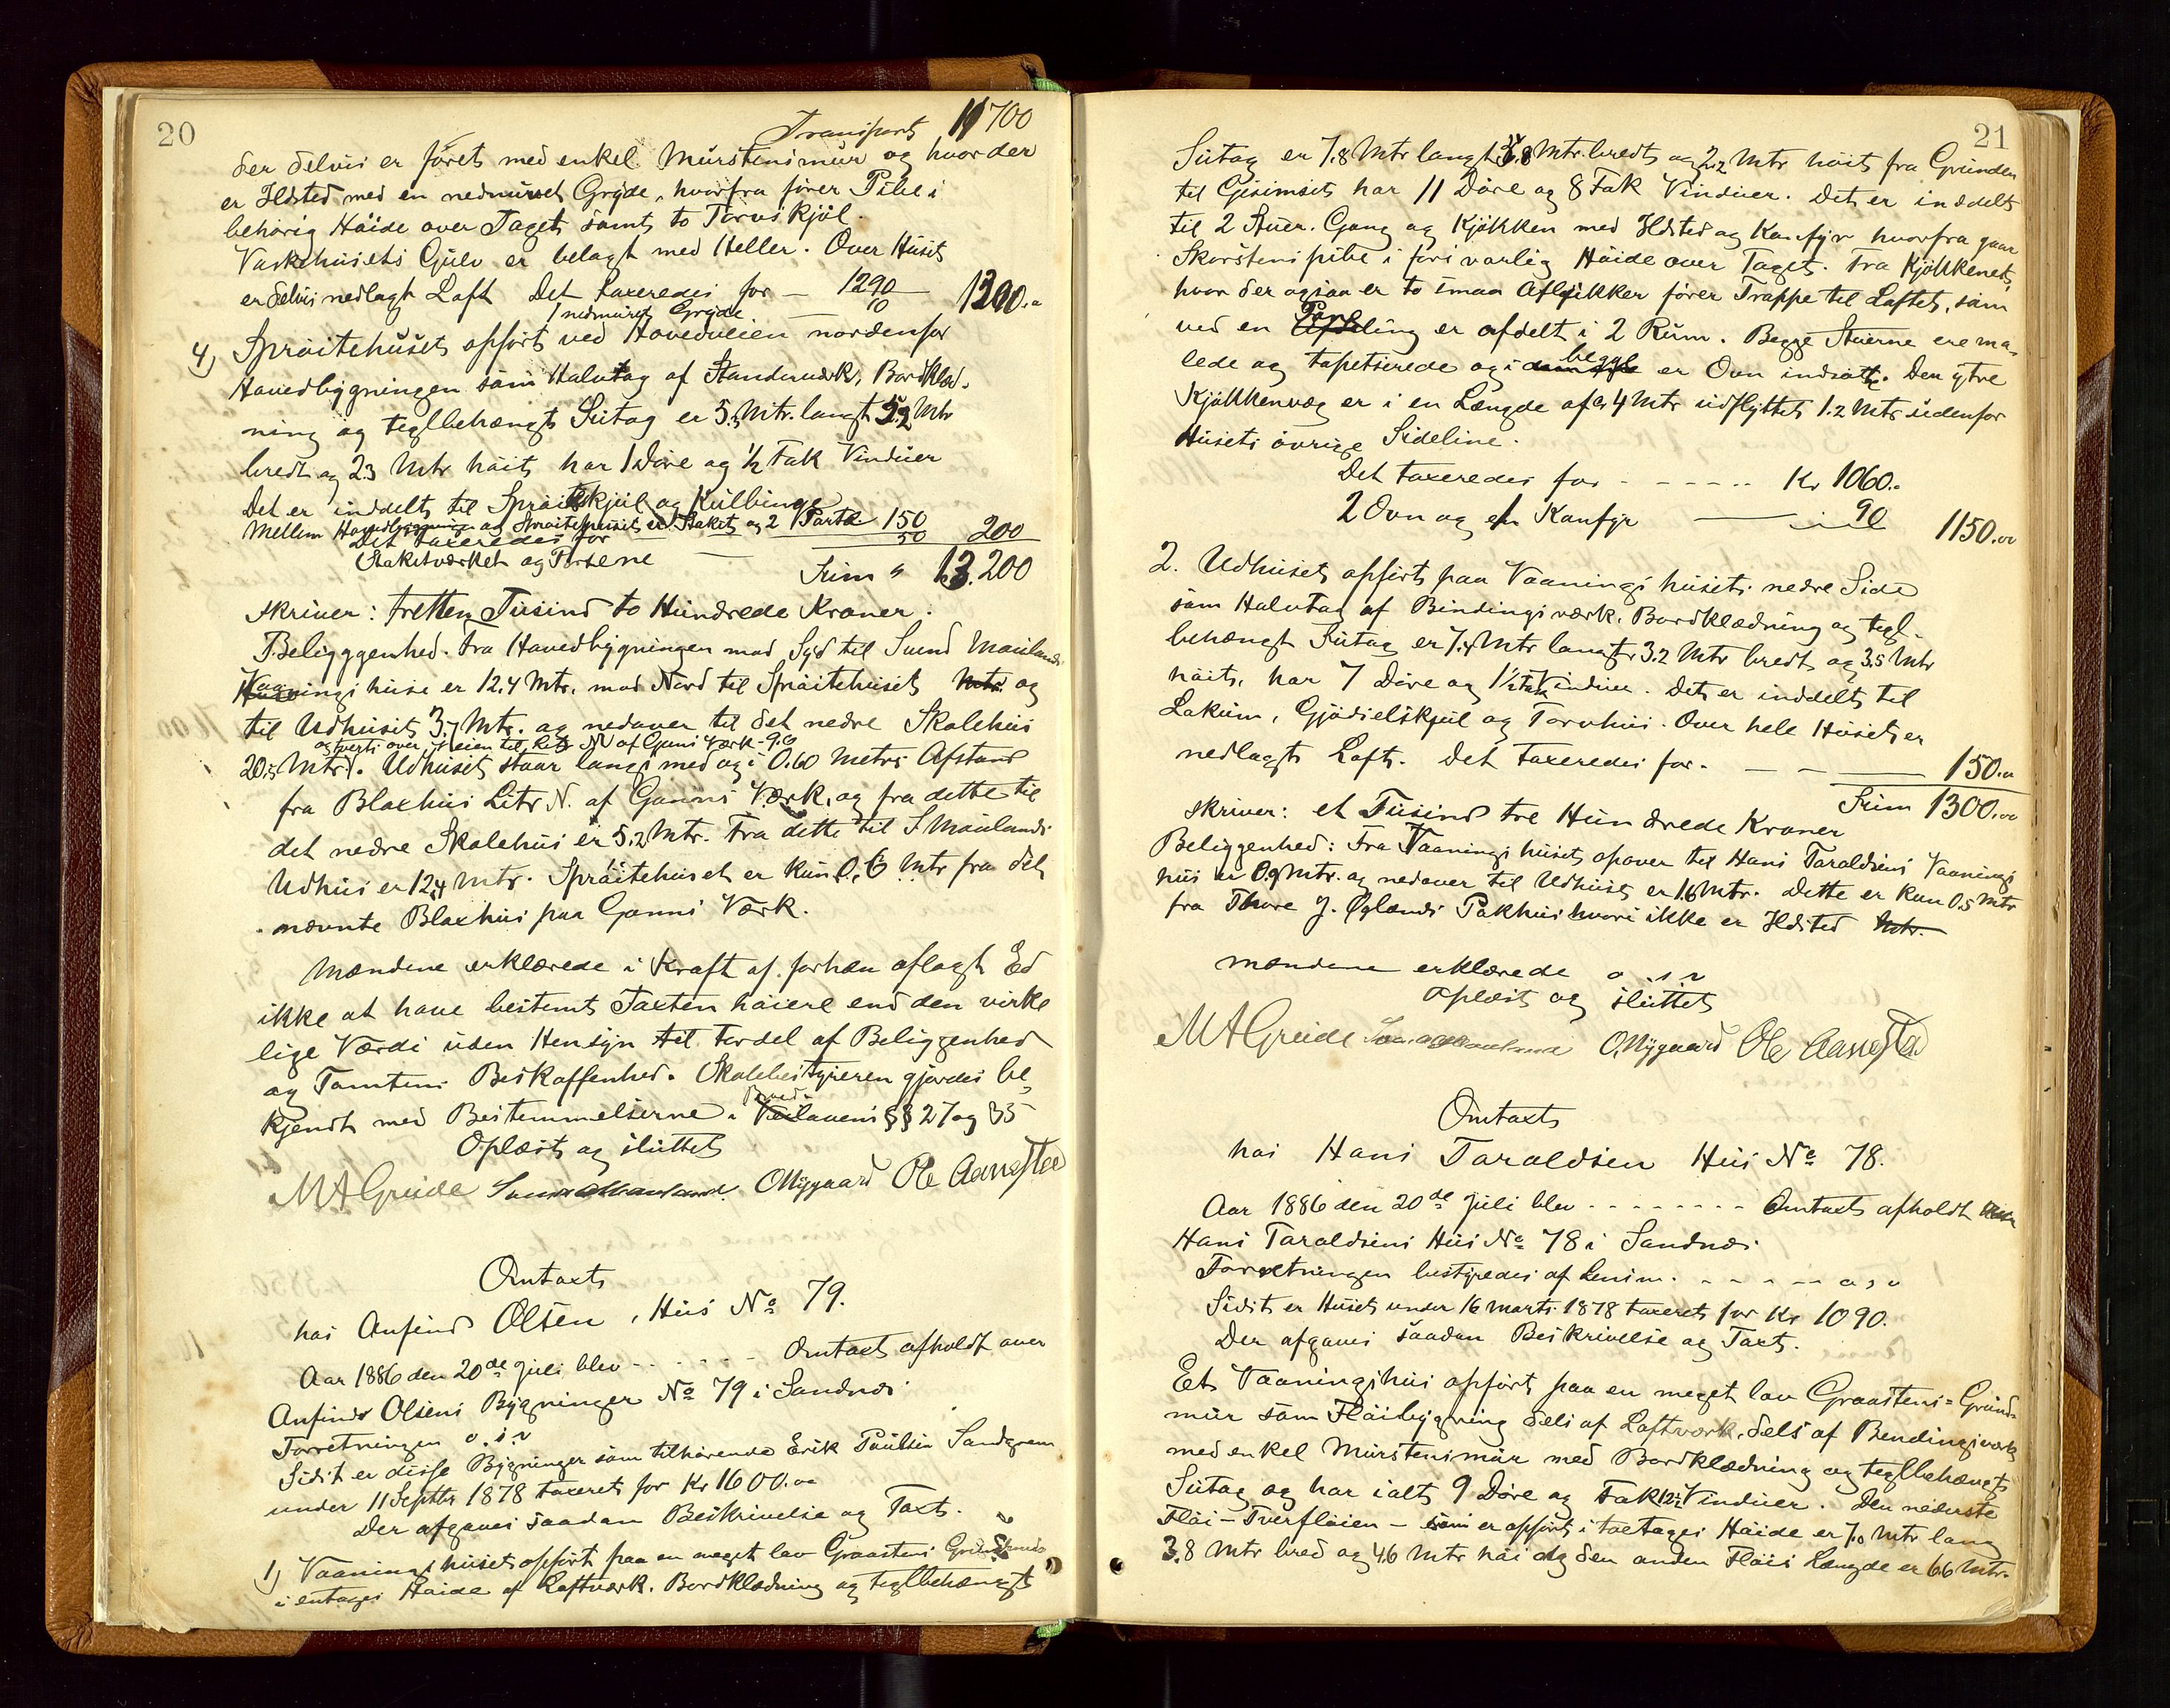 20
Transport 11700
der delvis er föret med enkel Murstensmur og hvor der
er Ildsted med en nedmuret Gryde, hvorfra förer Pibe i
behörig Höide over Taget samt to Torvskjöl.
Vaskehusets Gulv er belagt med Heller. Over Huset
er delvis nedlagt Loft Det taxeredes for — 1290
1 nedmuret Gryde — 10 1300.
4) Spröitehuset opfört ved Hovedveien nordenfor
Hovedbygningen som Halvtag af Standerværk, Bordklæd-
ning og teglbehængt Sutag er 5.5 Mtr. langt 5.2 Mtr
bredt og 2.3 Mtr höit, har 1 Döre og ½ Fak Vinduer
Det er inddelt til Spröiteskjul og Kulbinge
Mellem Hovedbygninge og Spröitehuset er Staket og 2 Porte
Det taxeredes for 150
Staketværket og Portene — 50 200
Sum " 13.200
skriver: tretten Tusind to Hundrede Kroner.
Beligggenhed. Fra Hovedbygningen mod Syd til Svend Maulands
Vaaningshuse er 12.4 Mtr. mod Nord til Spröitehuset og
til Udhuset 3.7 Mtr. og nedover til det nedre Skolehus
og tverts over Veien til Litr N af Gans Værk - 9.6
20.5 Mtr. Udhuset staar langs med og i 0.60 Metrs Afstand
fra Blaxhus Litr N. af Ganns Værk, og fra dette til
det nedre Skolehus er 5.2 Mtr. Fra dette til S. Maulands
Udhus er 12.4 Mtr. Spröitehuset er kun 0.6 Mtr fra det
nævnte Blaxhus paa Ganns Værk.
Mændene erklærede i Kraft af forhen aflagt Ed
ikke at have bestemt Taxten höiere end den virke
lige Værdi uden Hensyn til Fordel af Beliggenhed
og Tomtens Beskaffenhed. Skolebestyreren gjordes be-
kjendt med Bestemmelserne i Brandlovens §§ 27 og 35
Oplæst og sluttet
M A Greide Svend Mauland. O. Nygaard Ole Aanestad
Omtaxt
hos Anfind Olsen, Hus No 79.
Aar 1886 den 20de Juli blev - - - - - Omtaxt afholdt over
Anfind Olsens Bygninger No 79 i Sandnæs
Forretningen o. s. v
Sidst er disse Bygninger som tilhörende Erik Paulsen Sandgren
under 11 Septbr 1878 taxeret for Kr 1600.00
Der afgaves saadan Beskrivelse og Taxt.
1) Vaaningshuset opfört paa en meget lav Graastens Grundmur
i entages Höide af Loftværk. Bordklædning og teglbehængt
21
Sutag er 7.8 Mtr langt 5.8 Mtr. bredt og 2.2 Mtr höit fra Grunden
til Gesimset har 11 Döre og 8 Fak Vinduer. Det er inddelt
til 2 Stuer. Gang og Kjökken med Ildsted og Komfyr hvorfra gaar
Skorstenspibe i forsvarlig Höide over Taget. Fra Kjökkenet,
hvor der ogsaa er to smaa Aflukker förer Trappe til Loftet, som
ved en Deling er afdelt i 2 Rum. Begge Stuerne ere ma-
lede og tapetserede og i begge er Ovn indsatte. Den ytre
Kjökkenvæg er i en Længde af ca 4 Mtr udflyttet 1.2 Mtr udenfor
Husets övrige Sideline.
Det taxeredes for - - - - - Kr 1060.
2 Ovn og en Komfyr — 90 1150.00
2. Udhuset opfört paa Vaaningshusets nedre Side
som Halvtag af Bindingsværk. Bordklædning og tegl-
behængt Sutag er 7.4 Mtr langt, 3.2 Mtr bredt og 3.5 Mtr
höit, har 7 Döre og 1½ Fak Vinduer. Det er inddelt til
Lokum, Gjödselskjul og Torvhus. Over hele Huset er
nedlagt Loft. Det taxeredes for. — — 150.00
Sum 1300.00
skriver: et Tusind tre Hundrede Kroner
Beliggenhed: Fra Vaaningshuset opover til Hans Taraldsens Vaanings
hus er 0.9 Mtr. og nedover til Udhuset er 1.6 Mtr. Dette er kun 0.5 Mtr
fra Thore J. Öglænds Pakhus hvori ikke er Ildsted
Mændene erklærede o. s. v
Oplæst og sluttet
M A Greide Svend Mauland O. Nygaard Ole Aanestad
Omtaxt
hos Hans Taraldsen Hus No 78.
Aar 1886 den 20de Juli blev - - - - - - - Omtaxt afholdt
Hans Taraldsens Hus No 78 i Sandnæs
Forretningen bestyredes af Lensm. - - - - - o, s, v
Sidst er Huset under 16 Marts 1878 taxeret for Kr 1090.
Der afgaves saadan Beskrivelse og Taxt.
Et Vaaningshus opfört paa en meget lav Graastens-Grund-
mur som Flöibygning dels af Loftværk, dels af Bendingsværk
med enkel Murstensmur med Bordklædning og teglbehængt
Sutag og har ialt 9 Döre og Fak 12½ Vinduer. Den nederste
Flöi - Tverflöien - som er opfört i toetages Höide er 7.0 Mtr lang
3.8 Mtr bred og 4.6 Mtr höi og den anden Flöis Længde er 6.6 Mtr.